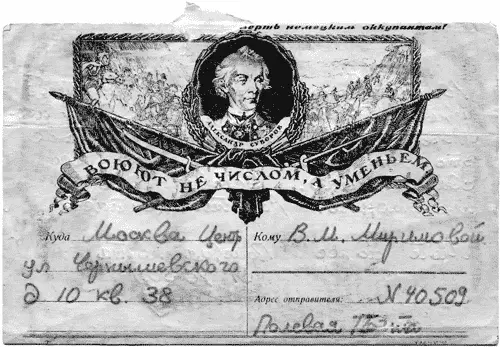 Смерть немецким оккупантам!
АЛЕКСАНДР СУВОРОВ
ВОЮЮТ НЕ ЧИСЛОМ, А УМЕНЬЕМ
Куда Москва Центр
ул Чернышевского
д 10 кв. 38
Кому В. М. Миримовой
Адрес отправителя: N 40509
Полевая